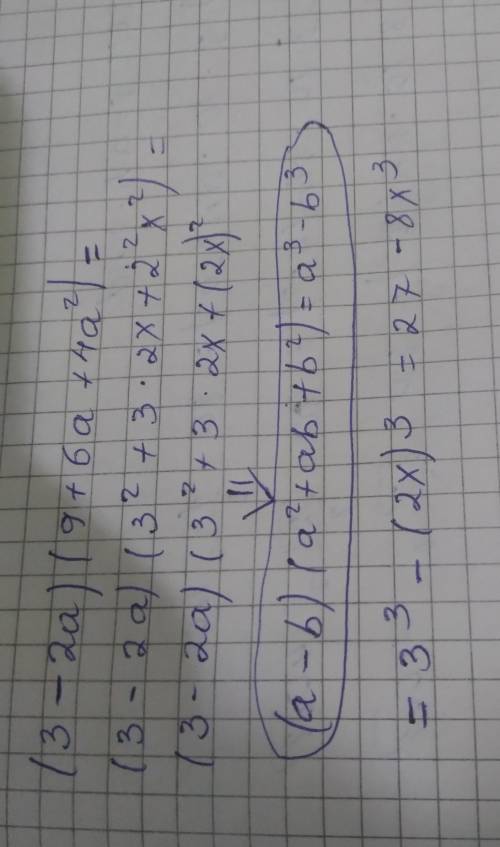 (3 - 2a)(9 + 6a + 4a²) =
(3 - 2a)(3² + 3 · 2x + 2²x²) =
(3 - 2a)(3² + 3 · 2x + (2x)²
(a - b)(a² + ab + b²) = a³ - b³
= 3³ - (2x)³ = 27 - 8x³